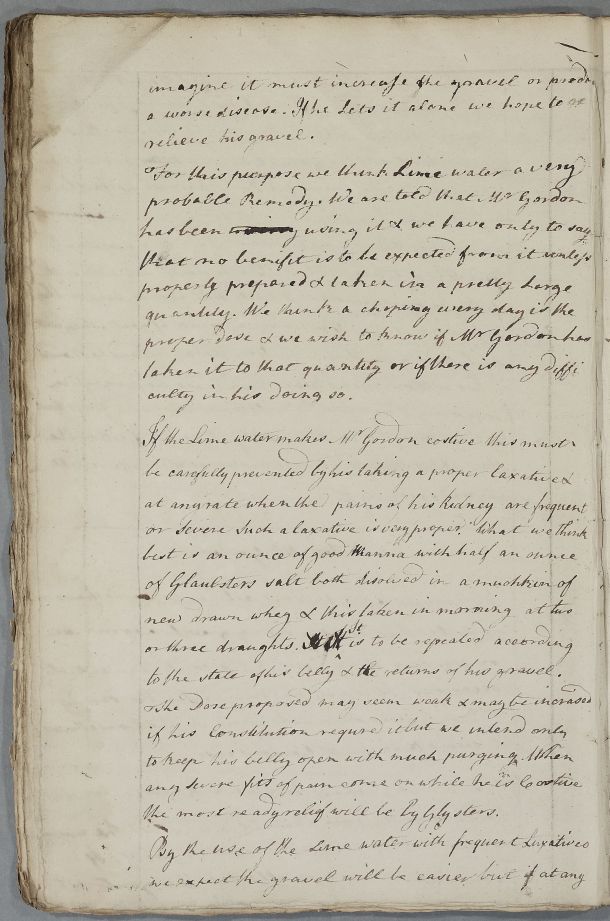 imagine it must increase the gravel or produ
a worse disease. If he lets it alone we hope to
relieve his gravel.
For this purpose we think Lime water a very
probable Remedy. We are told that Mr Gordon
has been using it & we have only to say
that no benifit is to be expected from it unless
properly prepared & taken in a pretty large
quantity. We think a chopin every day is the
proper Dose & we wish to know if Mr Gordon has
taken it to that quantity or if there is any diffi
culty in his doing so.
If the Lime water makes Mr Gordon costive this must
be carefully prevented by his taking a proper laxative &
at any rate when the pains of his Kidney are frequent
or severe such a laxative is very proper. What we think
best is an ounce of good Manna with half an ounce
of Glaubsters salt both disolved in a muchkin of
new drawn whey & this taken in morning at two
or three draughts. It is to be repeated according
to the state of his belly & the returns of his gravel.
The Dose proposed may seem weak & may be increased
if his Constitution requred it but we intend only
to keep his belly open with much purging. When
any severe fits of pain come on while he is Costive
the most ready relief will be by Glysters.
By the use of the Lime water with frequent Laxatives
we expect the gravel will be easier but if at any